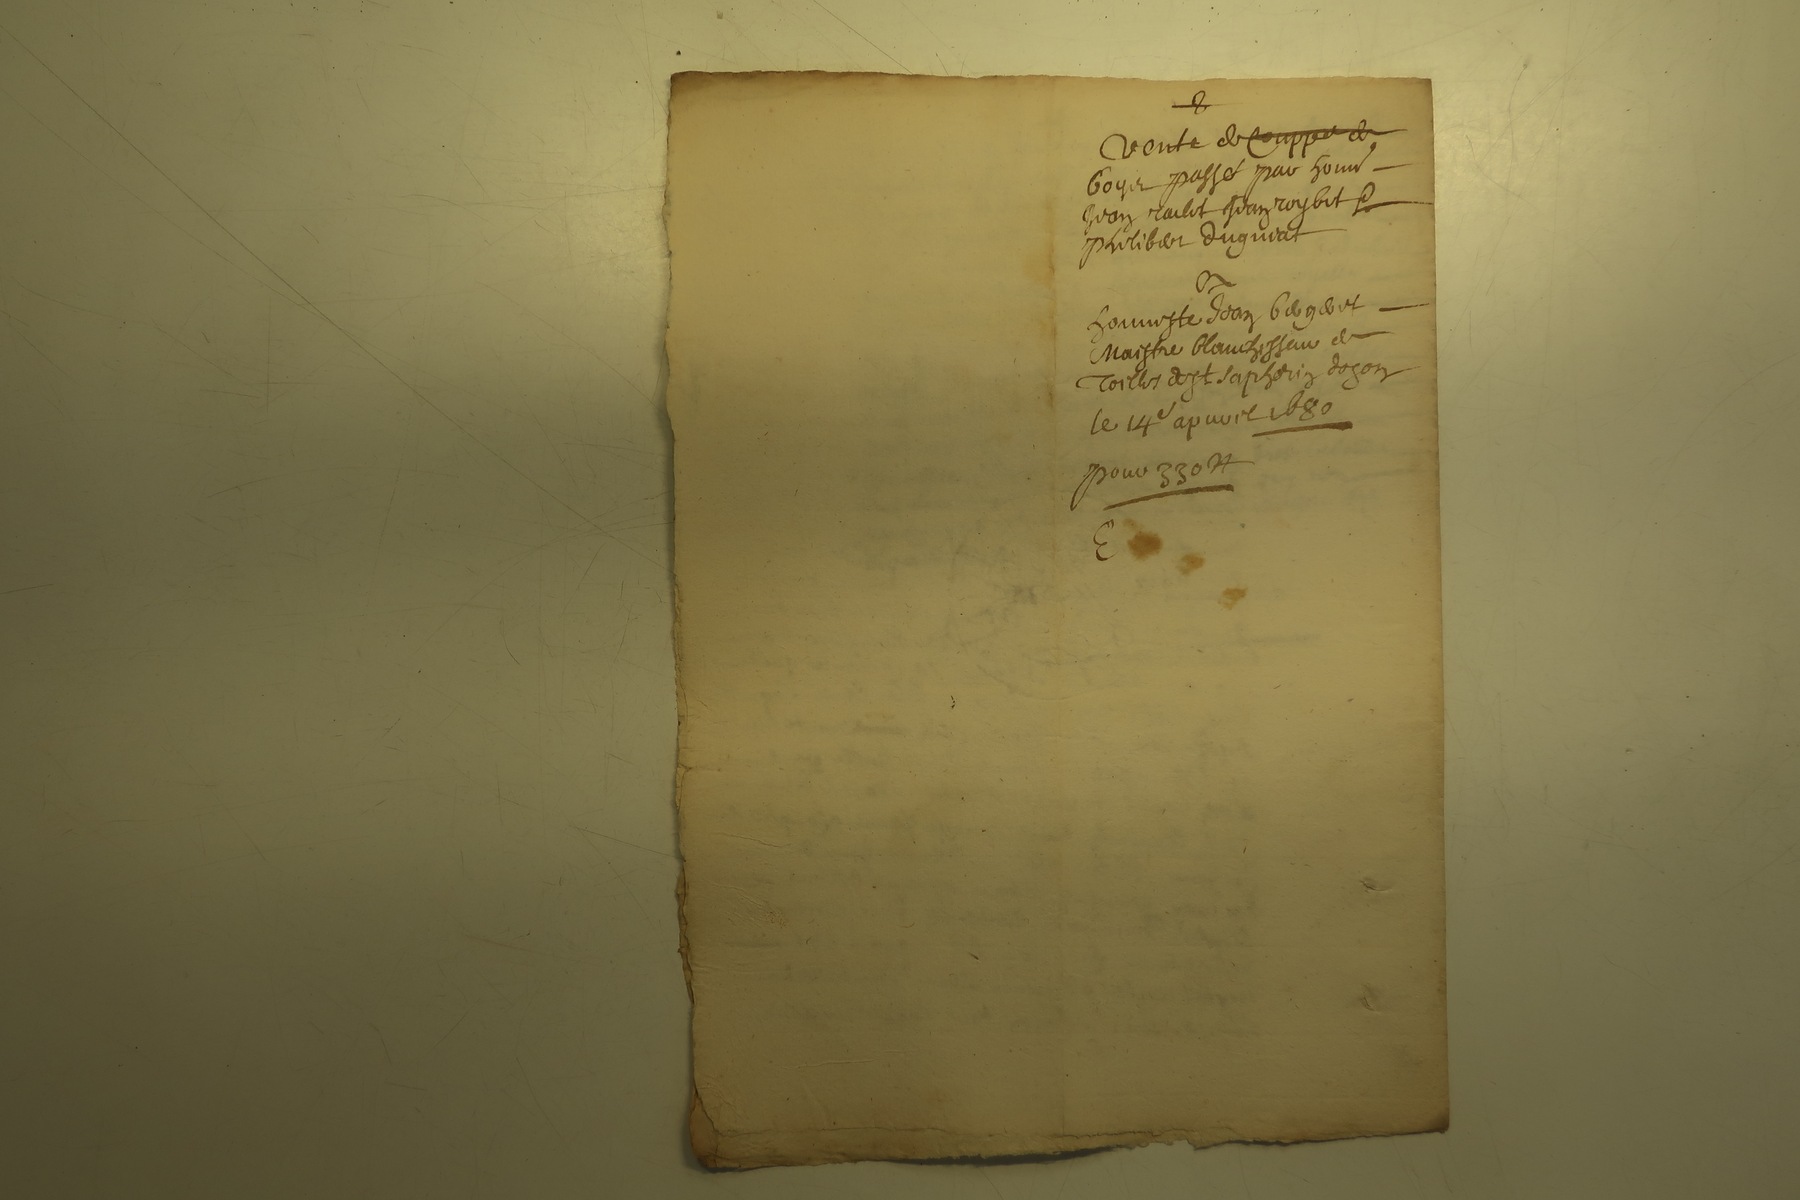 2
Vente de Couppe de
boyer passé par honn.
Jean racht Jean roybet &
philiber duguiat
A
honneste Jean bergeret
Maistre blanchisseur de
Toilles de st Saphorin dozon
le 14e apuril 1680
pour 330 ℔
E